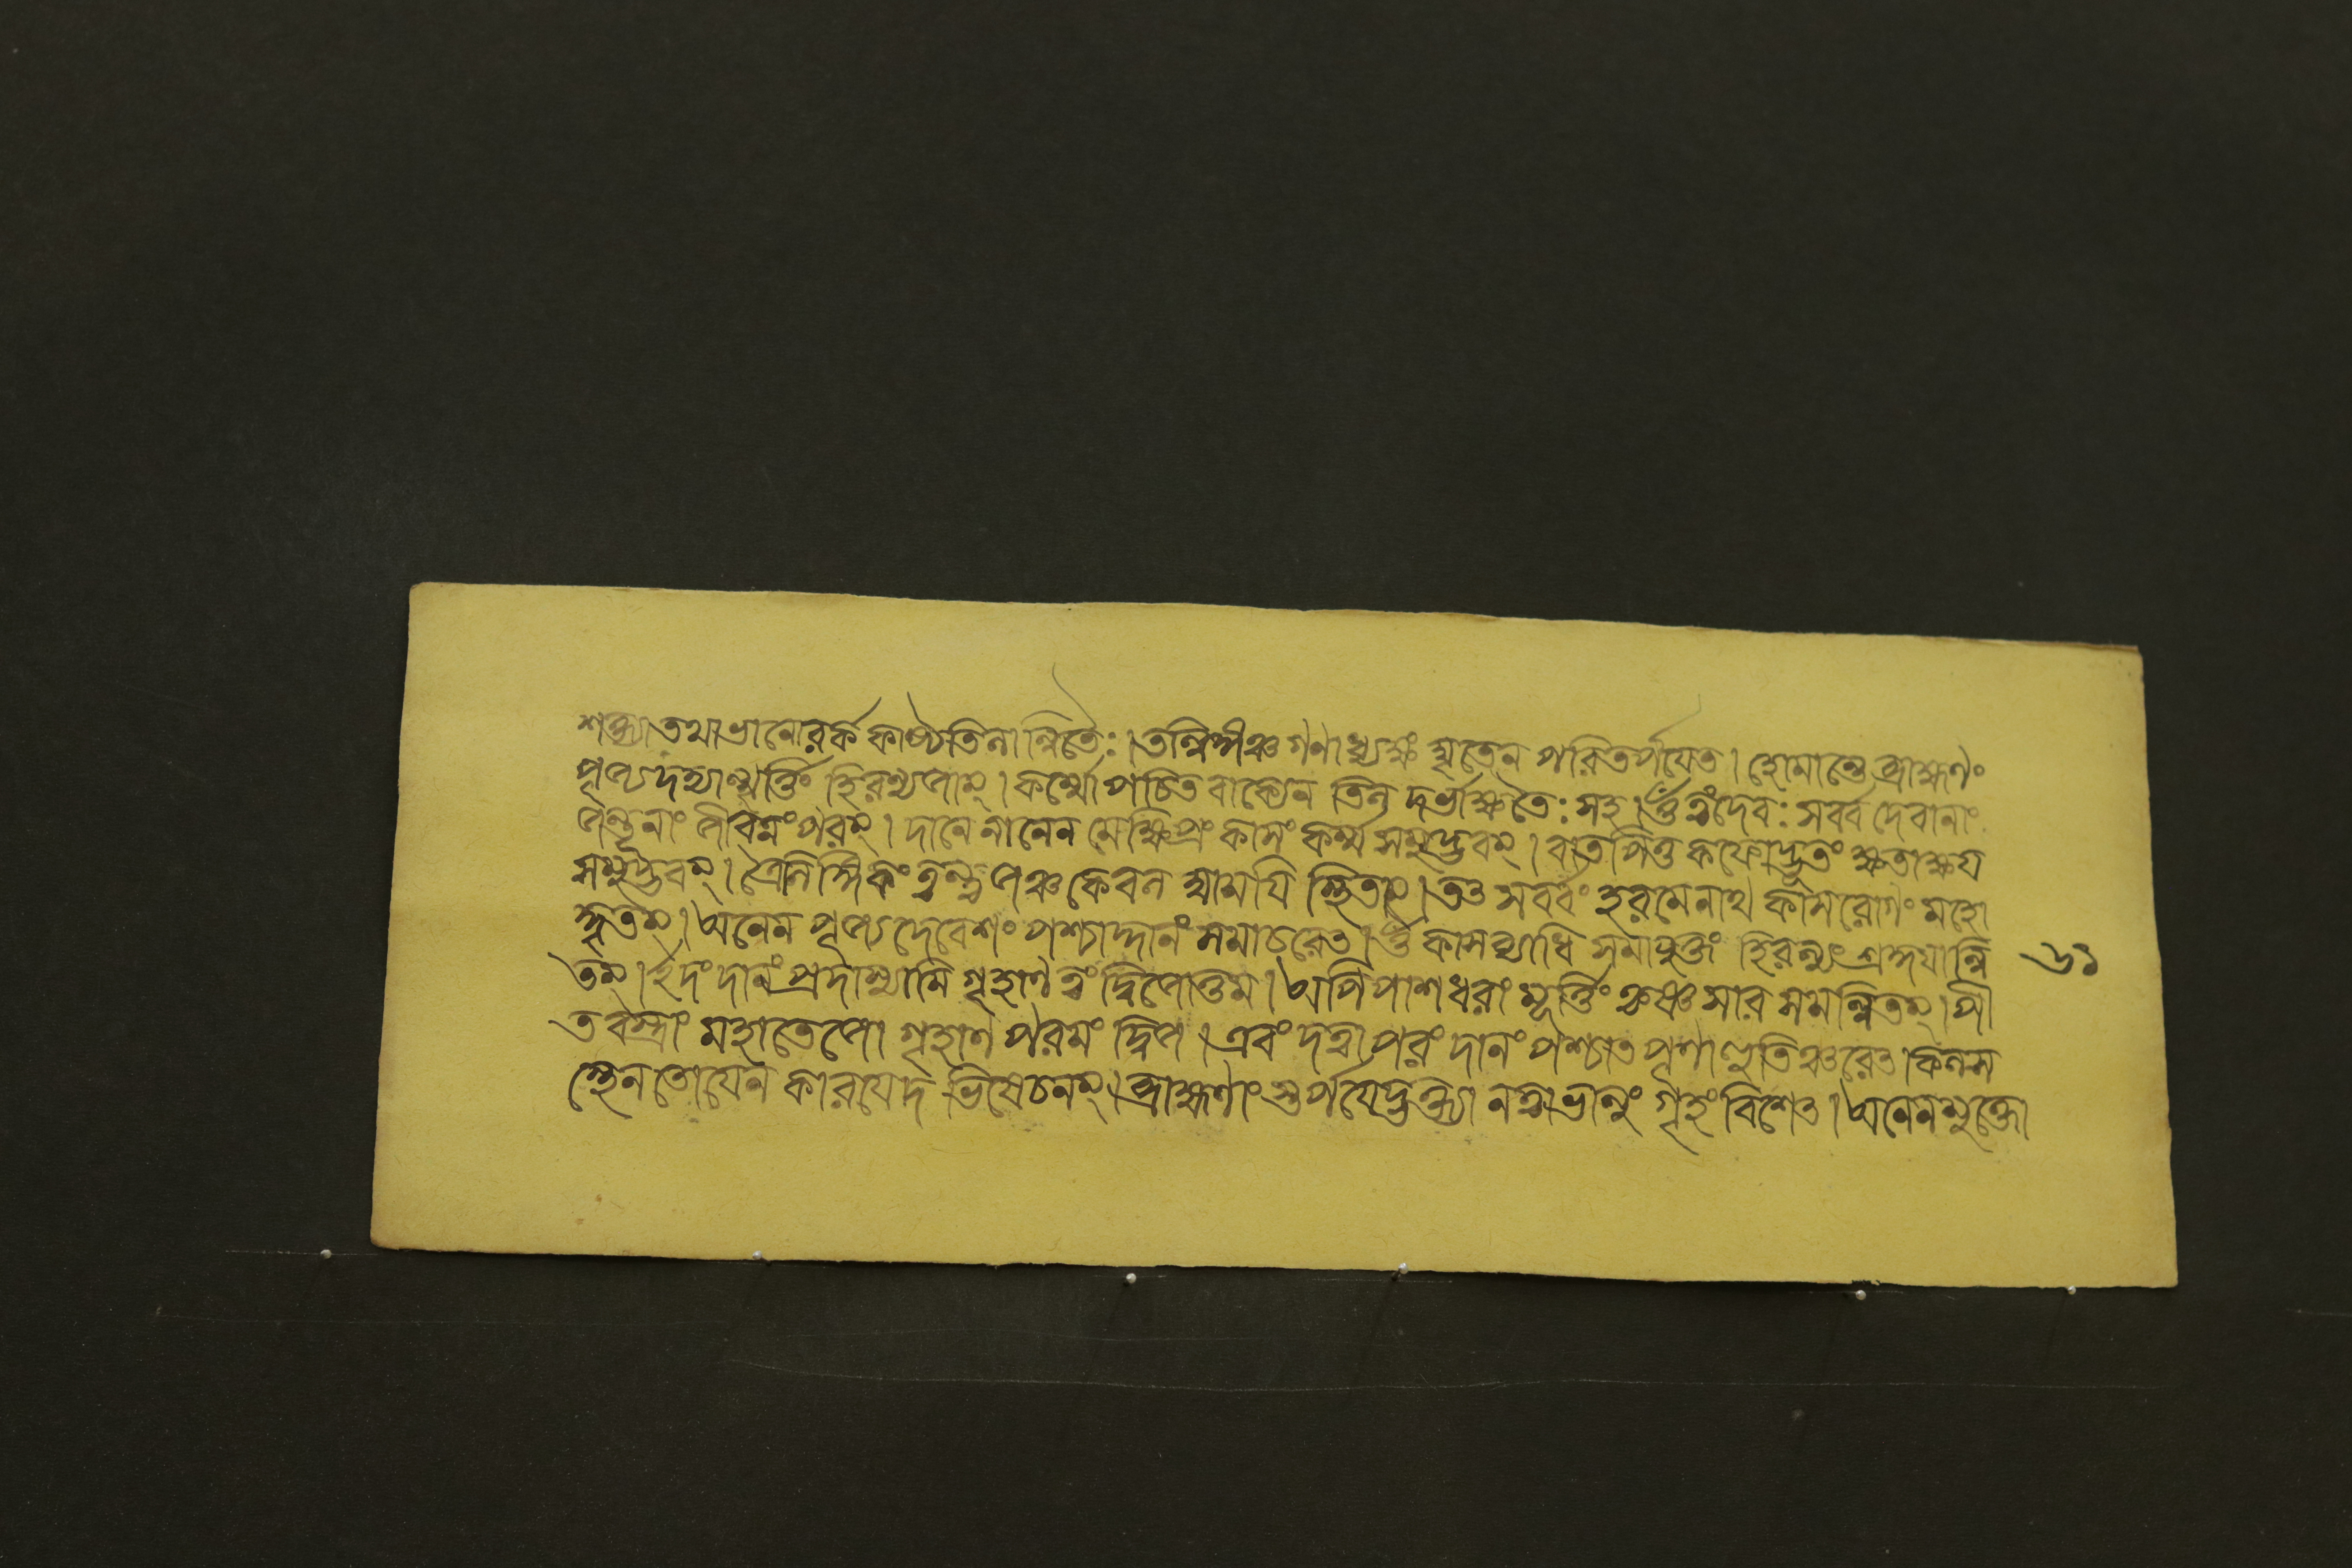 শক্ত্যা তথা ভানোরর্ক কাষ্ঠৈতিলান্বিতৈঃ। তন্নির্পীঞ্চ গণাধ্যক্ষং ঘৃতেন পরিতর্পযেত। হোমান্তে ব্রাহ্মণং
পূজ্য দদ্যান্মূর্ত্তিং হিরণ্যজাম্। কর্ম্মোপচিত বাক্যেন তিল দর্ভাক্ষতৈঃ সহ। ওঁ ত্বং দেবঃ সর্ব্ব দেবানাং
জন্তূনাং জীবনং পরম্। দানেনানেন মে ক্ষিপ্রং কাসং কর্ম্ম সমুদ্ভবম্। বাত পিত্ত কফোদ্ভূতং ক্ষতাক্ষয
সমুদ্ভবম্। কেবল স্থিতাম্। তৎ সর্ব্বং হর মে নাথ কাস রোগং মহো
দ্ভূতম্। অনেন পূজ্য দেবেশং পশ্চাদ্দানং সমাচরেৎ। ওঁ কাসব্যাধি সমাযুক্তং হিরণ্যং শ্রদ্ধযান্বি
তম্। ইদং দানং প্রদাস্যামি গৃহাণ ত্বং দ্বিজোত্তম। অপি পাশধরাং মূর্ত্তিং সমন্বিতম্। পী
ত বস্ত্রাং মহাতেজো গৃহাণ পরমং দ্বিজ। এবং দত্বা পরং দানং পশ্চাত পূর্ণাহুতিঞ্চরেৎ। কলস
স্থেন তোযেন কারযেদভিষেচনম্। ব্রাহ্মণাং স্তর্পযেদ্ভক্ত্যা নত্বা ভানুং গৃহং বিশেৎ। অনেন মুক্তো
৬১